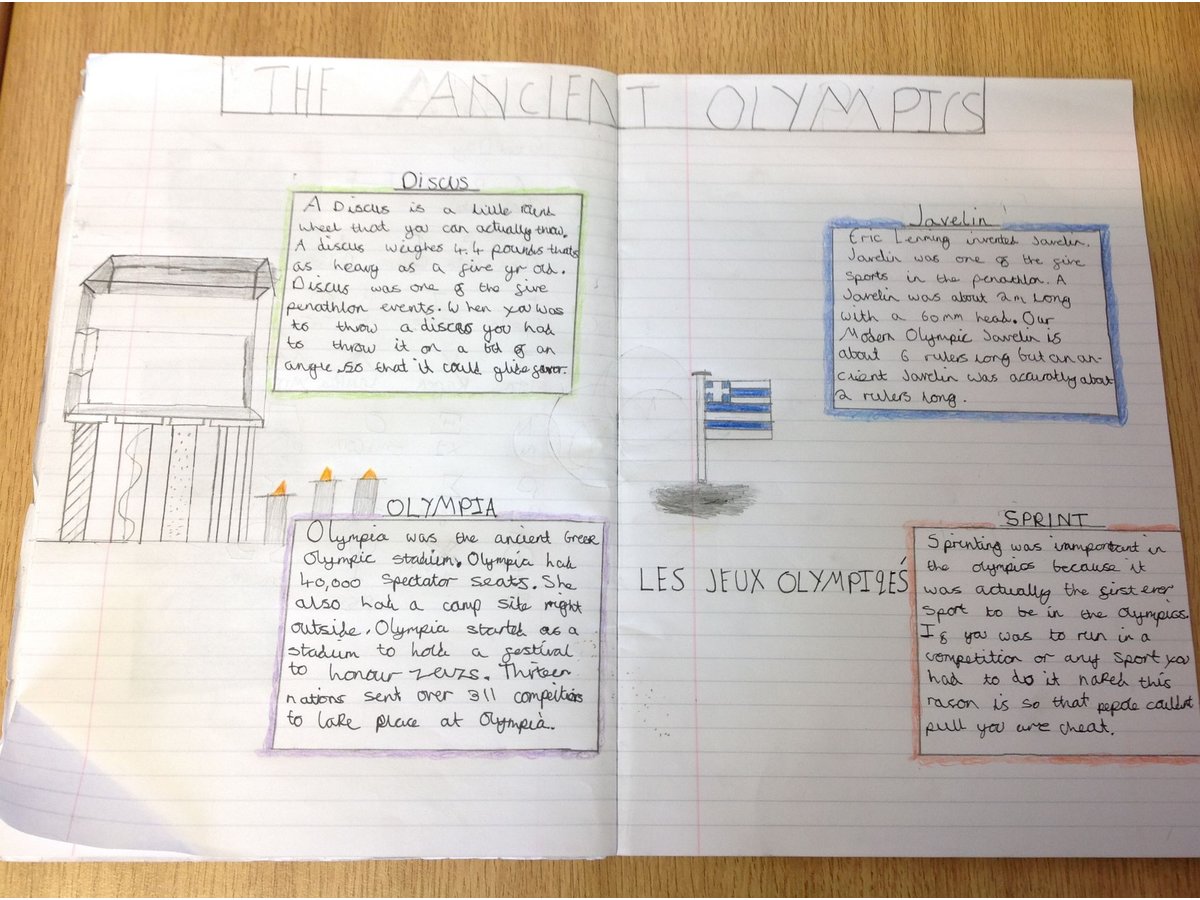 THE ANCIENT OLYMPICS
Discus
A Discus is a little round
wheel that you can actually throw.
A discus weighes 4.4 pounds thats
as heavy as a five yr old.
Discus was one of the five
penathlon events. When you was
to throw a discus you had
to throw it on a bit of an
angle so that it could glise
OLYMPIA
Olympia was the ancient Greek
Olympic stadium. Olympia had
40,000 Spectator seats. She
also had a camp site right
outside. Olympia started as a
stadium to hold a festival
to honour zeuzs. Thirteen
nations sent over 311 competitors
to take place at Olympia.
Javelin
Eric Lenning invented Javelin.
Javelin was one of the five
sports in the penathlon. A
Javelin was about 2m long
with a 60mm head. Our
Modern Olympic Javelin is
about 6 rulers long but an an-
cient Javelin was accuratly about
2 rulers long.
LES JEUX OLYMPIQES
SPRINT
Sprinting was inmportant in
the olympics because it
was actually the first ever
sport to be in the Olympics.
If you was to run in a
competition or any sport you
had to do it naked this
rason is so that pepole couldnt
pull you are cheat.